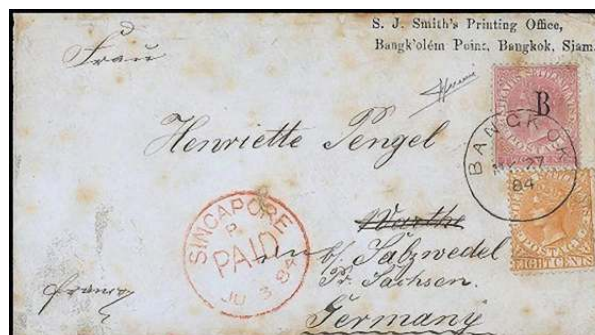 S. J. Smith's Printing Office,
Bangk'olém Point, Bangkok, Siam.
Frau
Henriette Pengel
B
BANGKOK
MY 27
84
SINGAPORE
P
PAID
JU 3 84
Warthe
b/ Salzwedel
Pr. Sachsen.
Germany
POSTAGE
EIGHT CENTS